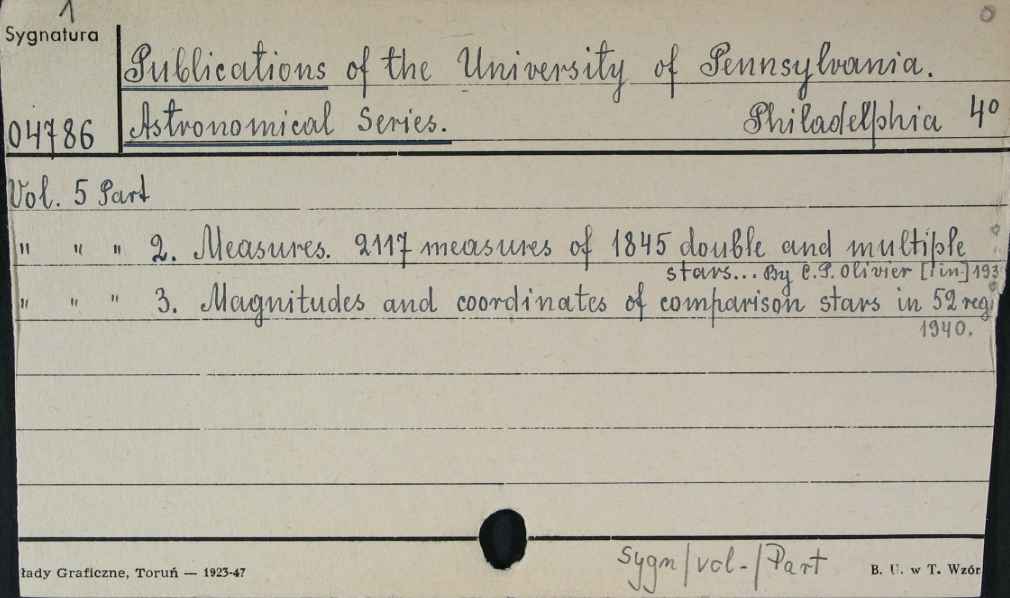 1
Sygnatura
Publications of the University of Pennsylvania.
04786 Astronomical Series. Philadelphia 4°
Vol. 5 Part
" " " 2. Measures. 2117 measures of 1845 double and multiple
stars... By C.P. Olivier [1 in] 193
" " " 3. Magnitudes and coordinates of comparison stars in 52 reg
1940.
Sygn/vol-/Part
łady Graficzne, Toruń — 1923-47 B. U. w T. Wzór